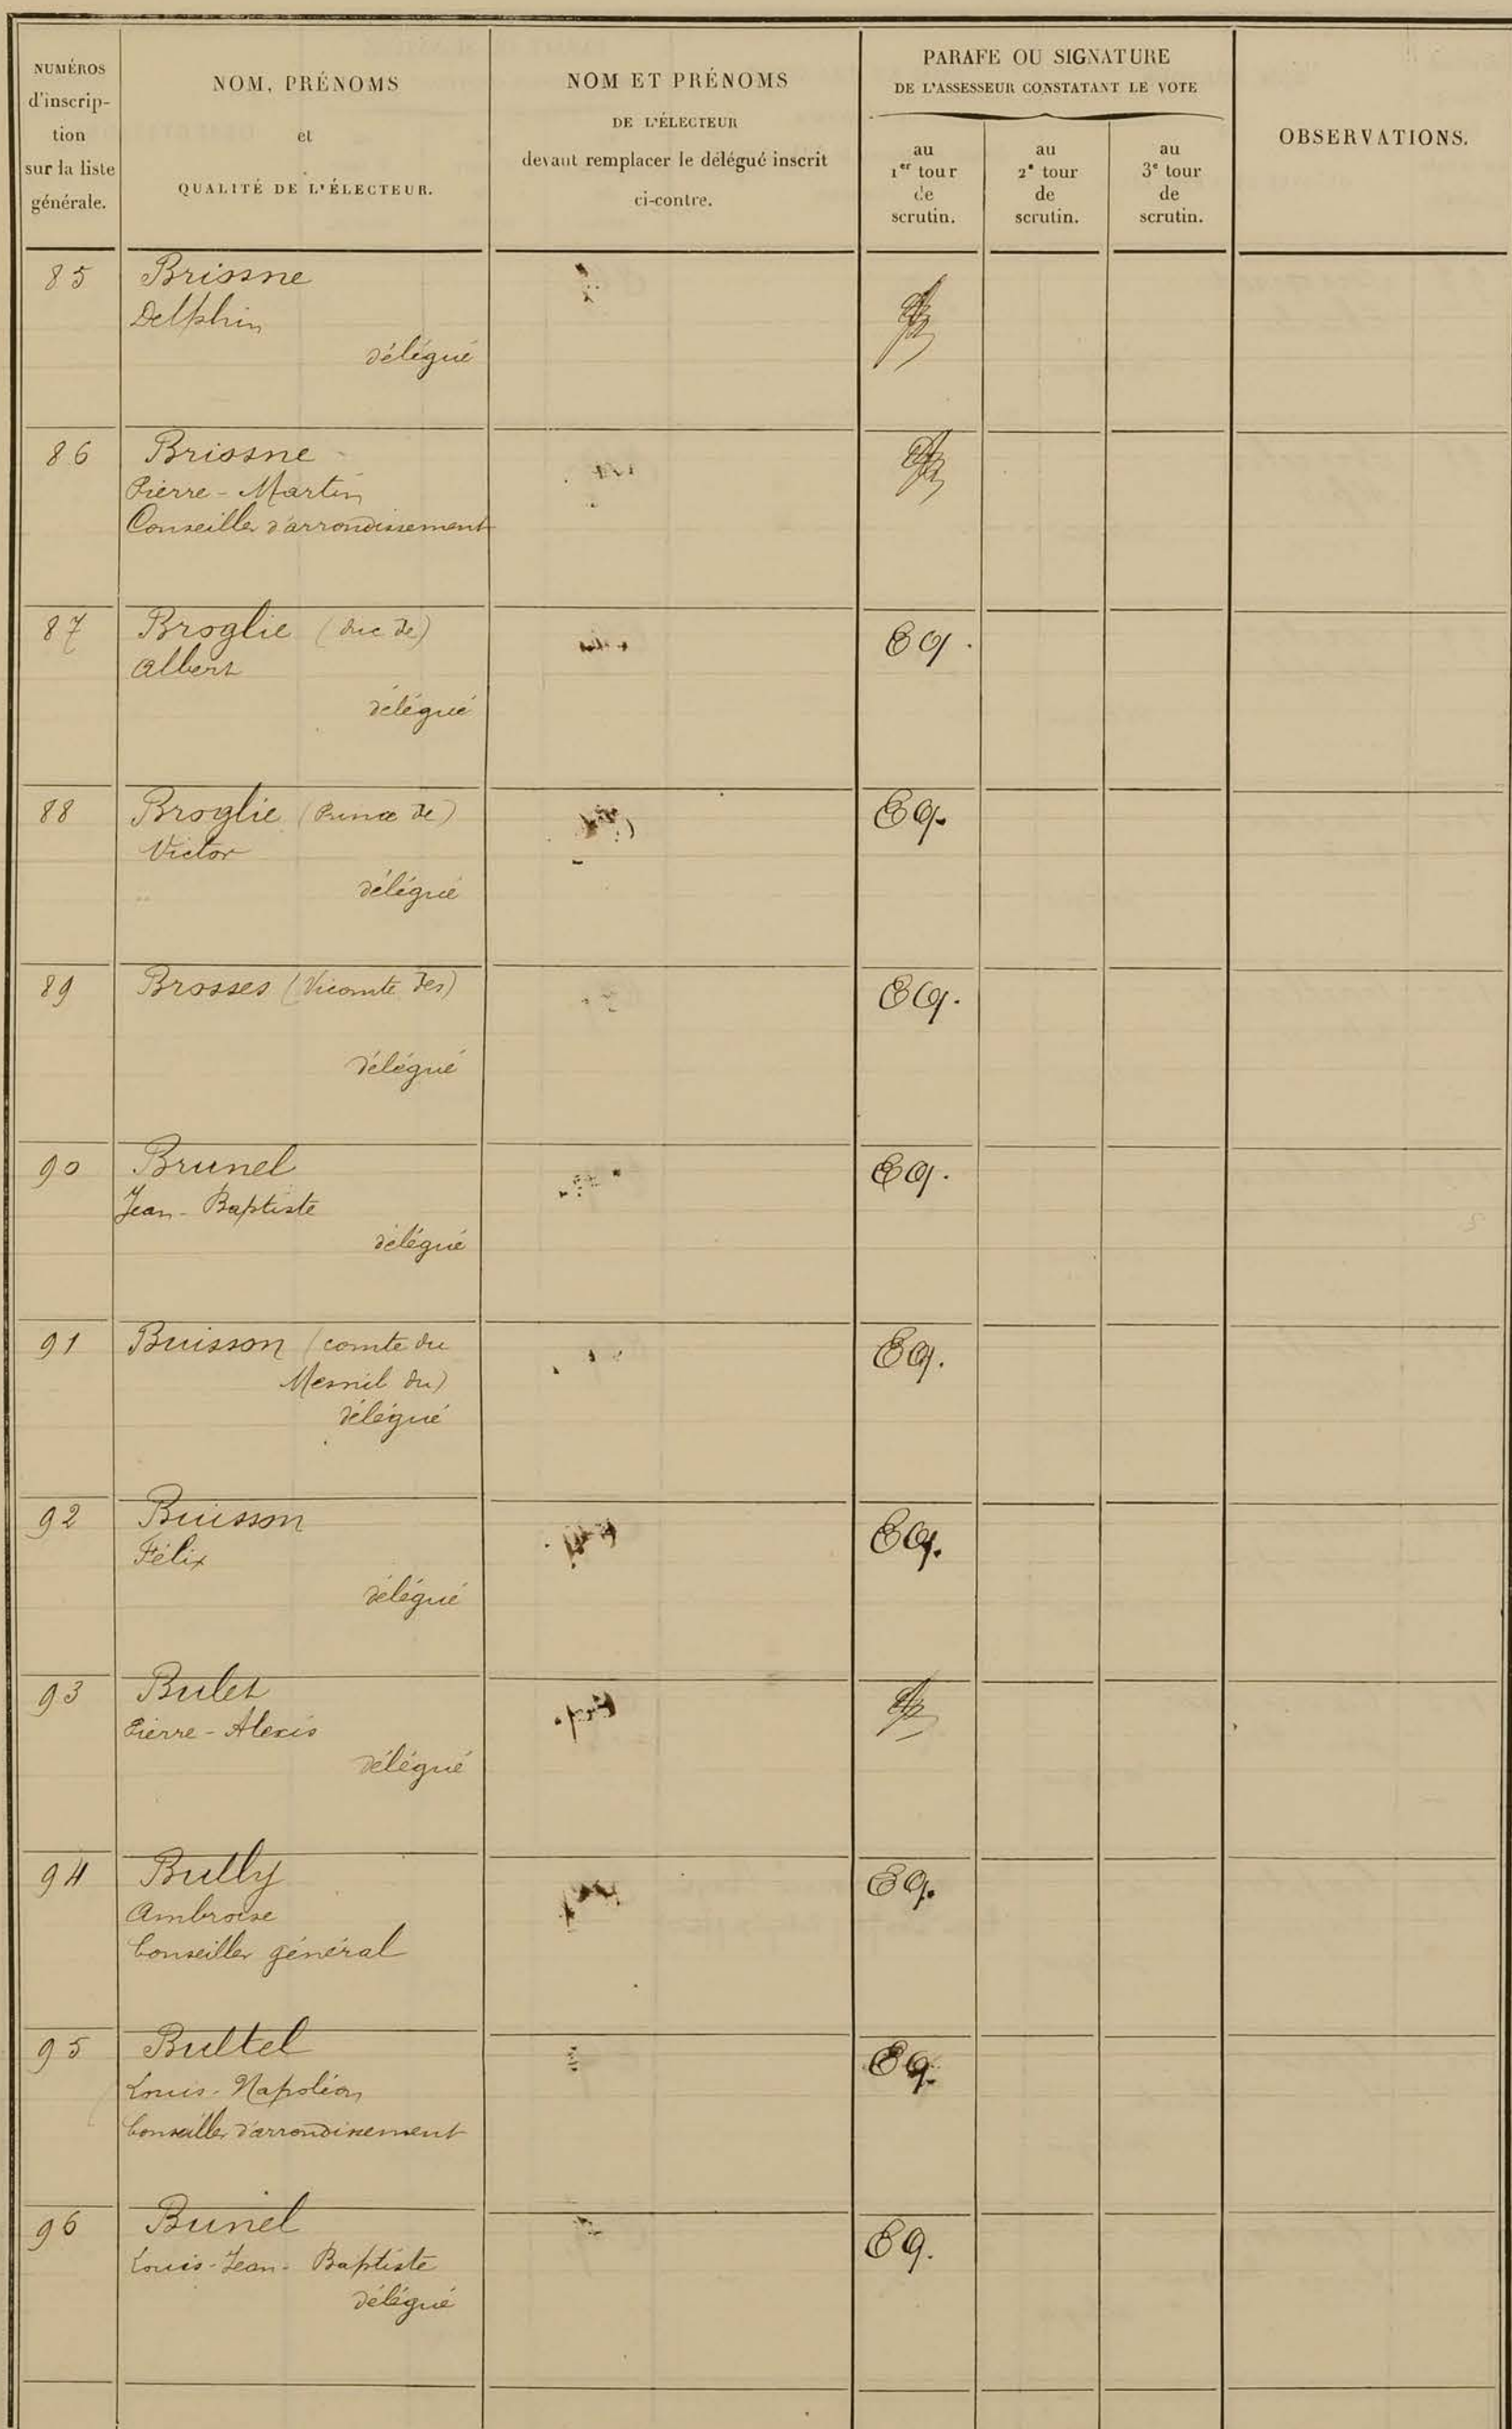 NUMÉROS
d'inscrip-
tion
sur la liste
générale.
NOM, PRÉNOMS
et
QUALITÉ DE L'ÉLECTEUR.
NOM ET PRÉNOMS
DE L'ÉLECTEUR
devant remplacer le délégué inscrit
ci-contre.
PARAFE OU SIGNATURE
DE L'ASSESSEUR CONSTATANT LE VOTE
au
1er tour
de
scrutin.
au
2e tour
de
scrutin.
au
3e tour
de
scrutin.
OBSERVATIONS.
85 Briosne
Delphin
délégué
86 Briosne
Pierre-Martin
Conseiller d'arrondissement
87 Broglie (duc de)
Albert
délégué
88 Broglie (Prince de)
Victor
délégué
89 Brosses (Vicomte des)
délégué
90 Brunel
Jean-Baptiste
délégué
91 Buisson (comte du
Mesnil du)
délégué
92 Buisson
Félix
délégué
93 Bulet
Pierre-Alexis
délégué
94 Bully
Ambroise
Conseiller général
95 Bultel
Louis-Napoléon
Conseiller d'arrondissement
96 Bunel
Louis-Jean-Baptiste
délégué